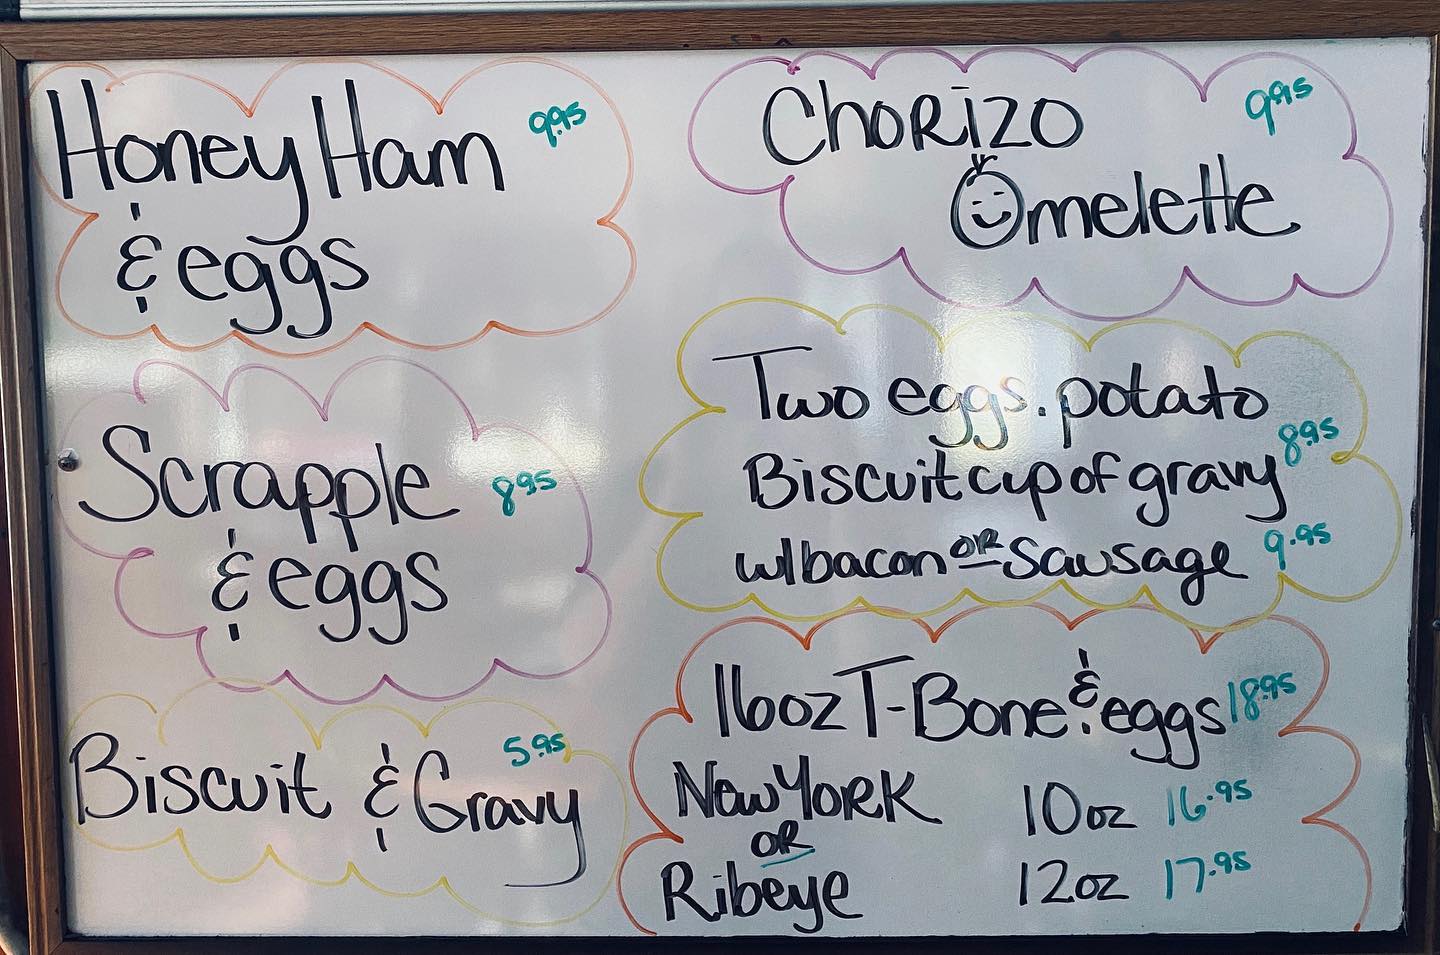 Honey Ham 9.95
& eggs
Scrapple 8.95
& eggs
Biscuit & Gravy 5.95
Chorizo 9.95
Omelette
Two eggs. potato
Biscuit cup of gravy 8.95
w/bacon OR Sausage 9.95
16oz T-Bone & eggs 18.95
New York 10oz 16.95
OR
Ribeye 12oz 17.95